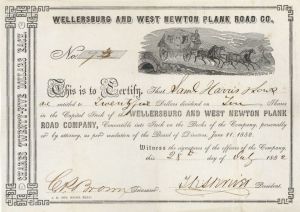 WELLERSBURG AND WEST NEWTON PLANK ROAD CO.,
SHARES TWENTY-FIVE DOLLARS EACH.
No. 73
This is to Certify, That Saml Harris & Sons
are entitled to Twenty five Dollars dividend on Ten Shares
in the Capital Stock of the WELLERSBURG AND WEST NEWTON PLANK
ROAD COMPANY, Convertible into Stock on the Books of the Company, personally
or by attorney, as per resolution of the Board of Directors, June 11, 1852.
Witness the signatures of the officers of said Company,
this 28th day of July 1852
Treasurer.
President.